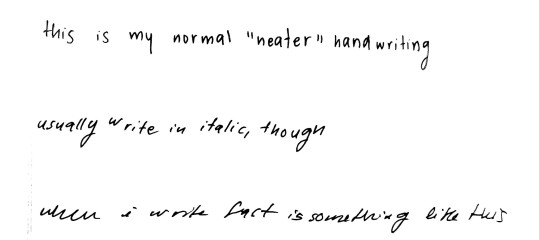 this is my normal "neater" handwriting
usually write in italic, though
when i write fast is something like this